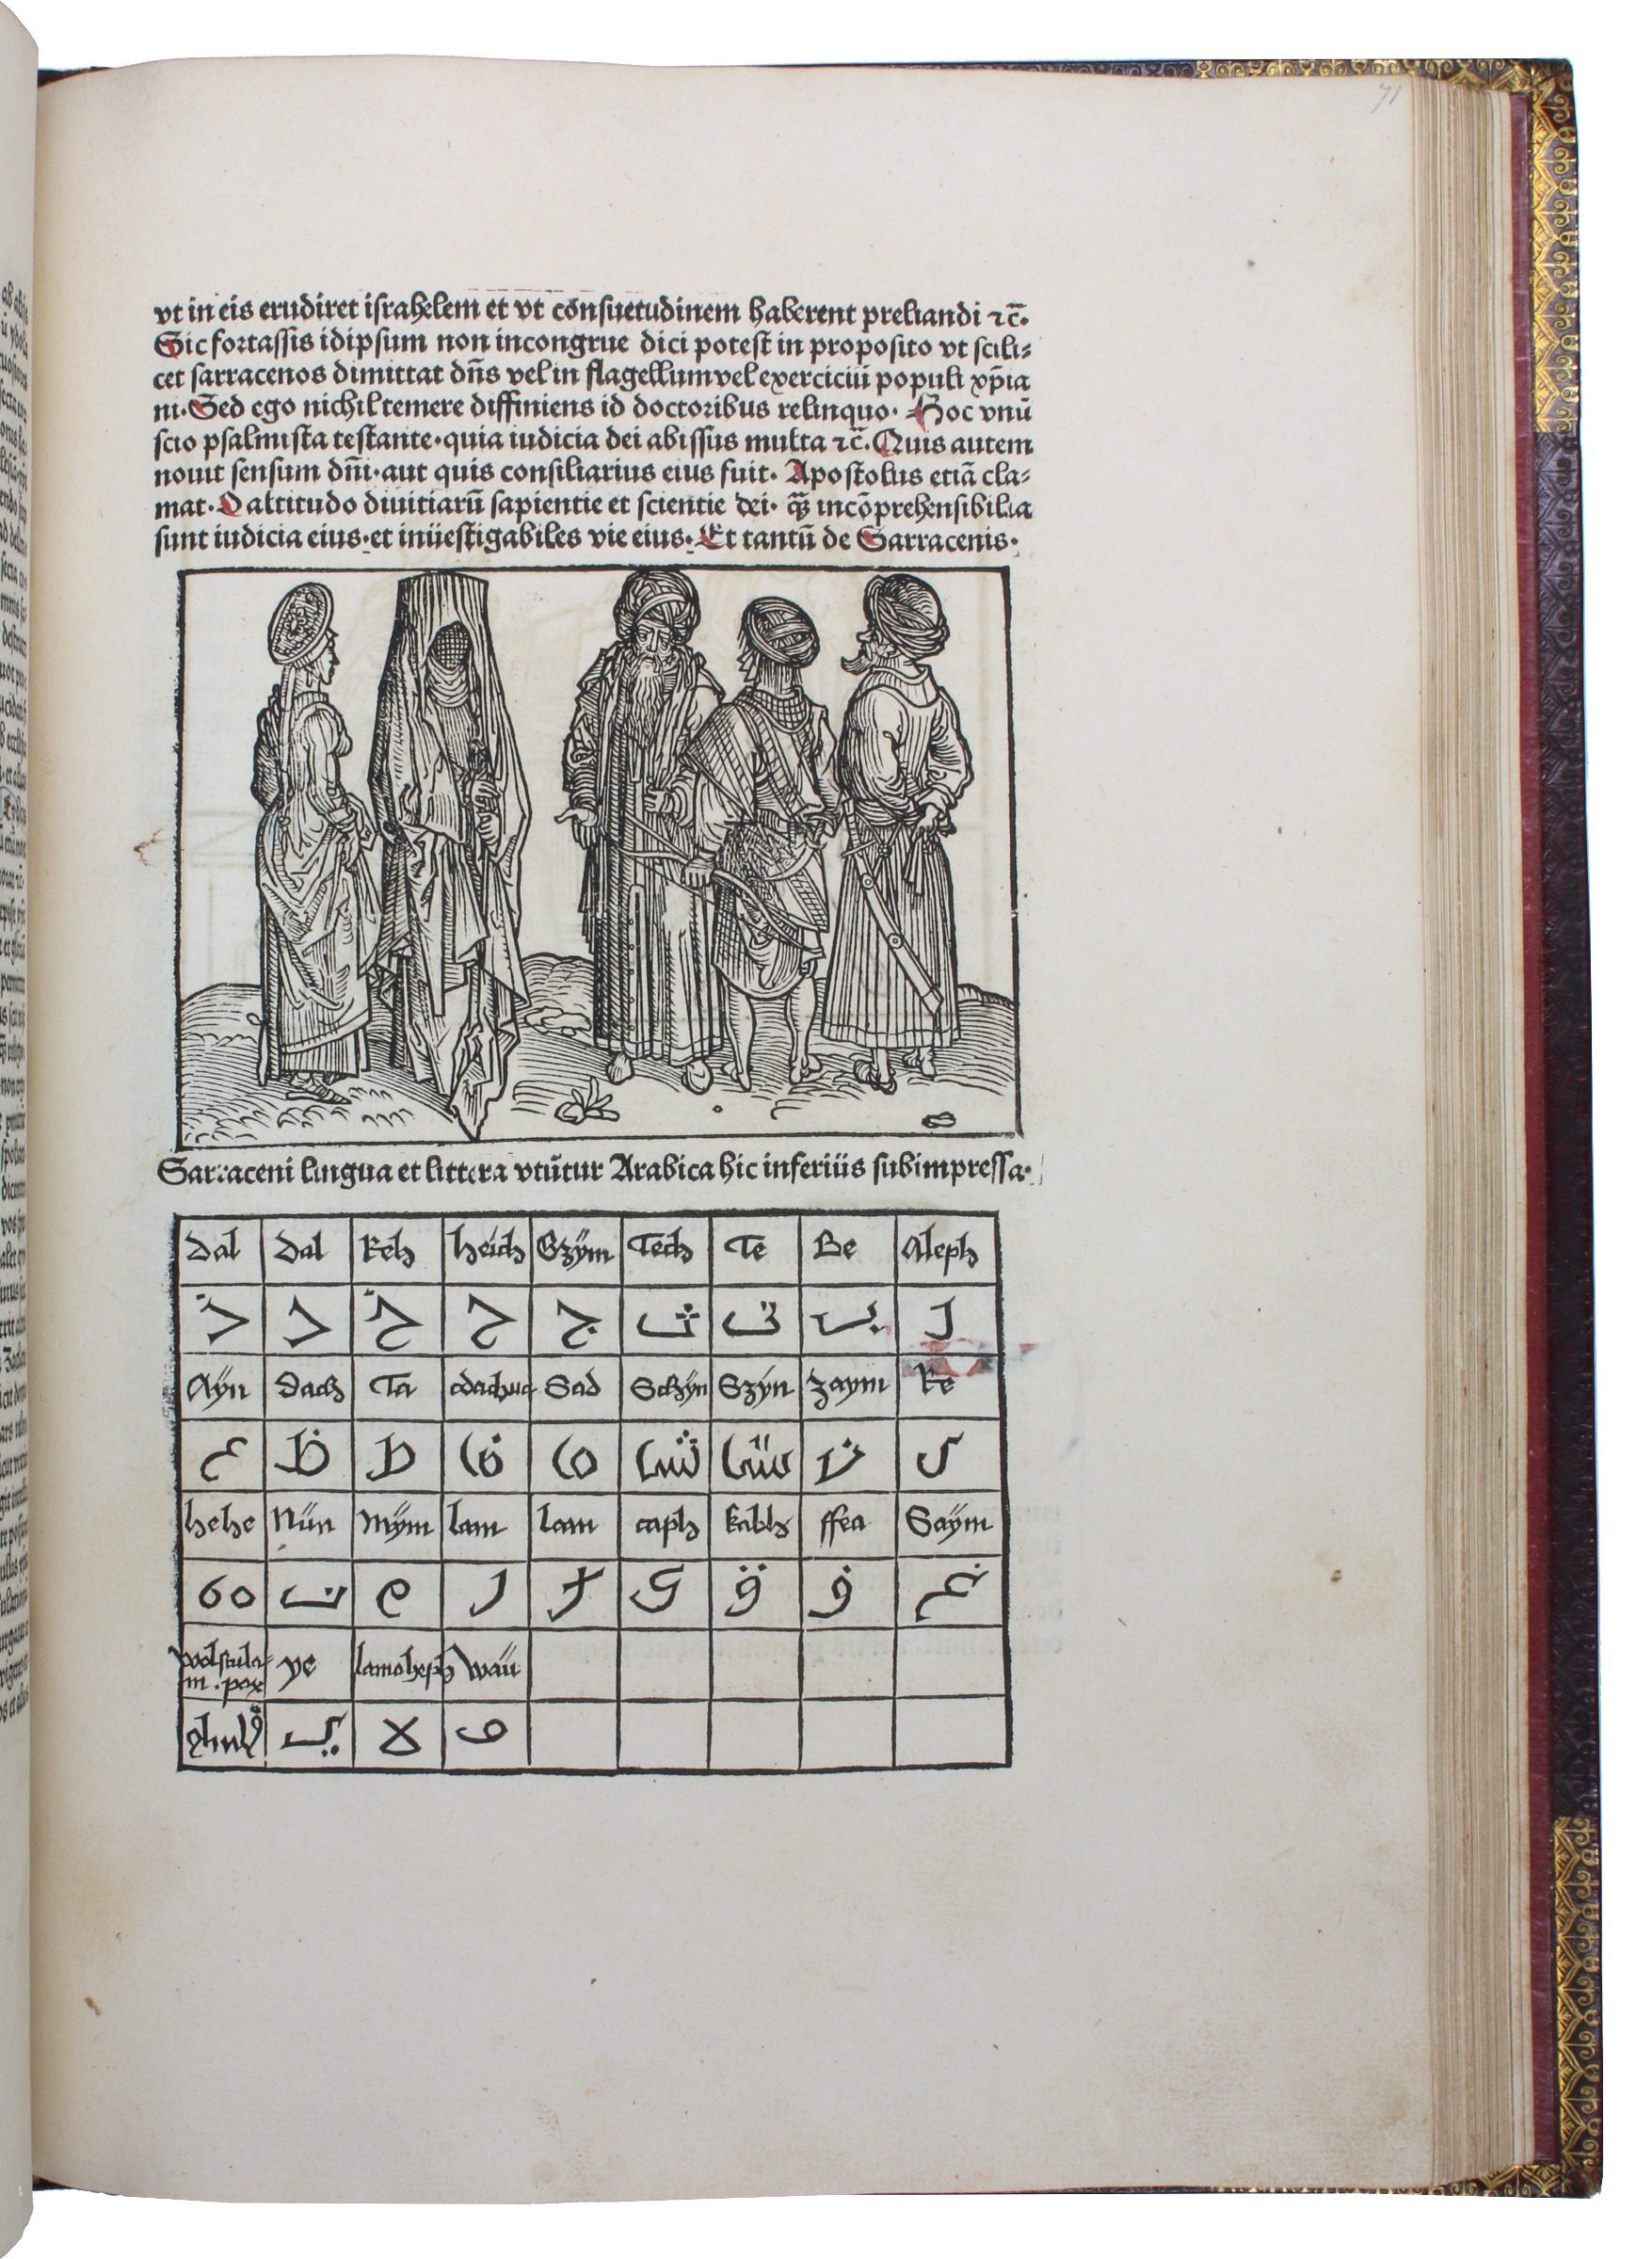 71
vt in eis erudiret israhelem et vt cōsuetudinem haberent preliandi ⁊c̄.
Sic fortassis idipsum non incongrue dici potest in proposito vt scili⸗
cet sarracenos dimittat dn̄s vel in flagellum vel exerciciū populi xp̄ia
ni. Sed ego nichil temere diffiniens id doctoribus relinquo. Hoc vnū
scio psalmista testante. quia iudicia dei abissus multa ⁊c̄. Quis autem
nouit sensum dn̄i. aut quis consiliarius eius fuit. Apostolus etiā cla⸗
mat. O altitudo diuitiarū sapientie et scientie dei. q̄ꝫ incōprehensibilia
sunt iudicia eius. et inuestigabiles vie eius. Et tantū de Sarracenis.
Sarraceni lingua et littera vtūtur Arabica hic inferius subimpressa.
Dal Dal Reh heich Gzÿm Tech Te Be Aleph
ذ د خ ح ج ث ت ب ا
Aÿn Dach Ta Sad Schÿn Szÿn Zaym Re
ع ظ ط ض ص ش س ز ر
hehe Nün Mÿm lam lam caph kabh ffea Saÿm
ه ن م ل ك ق ف غ
ye lamoheph Wau
ي لا و